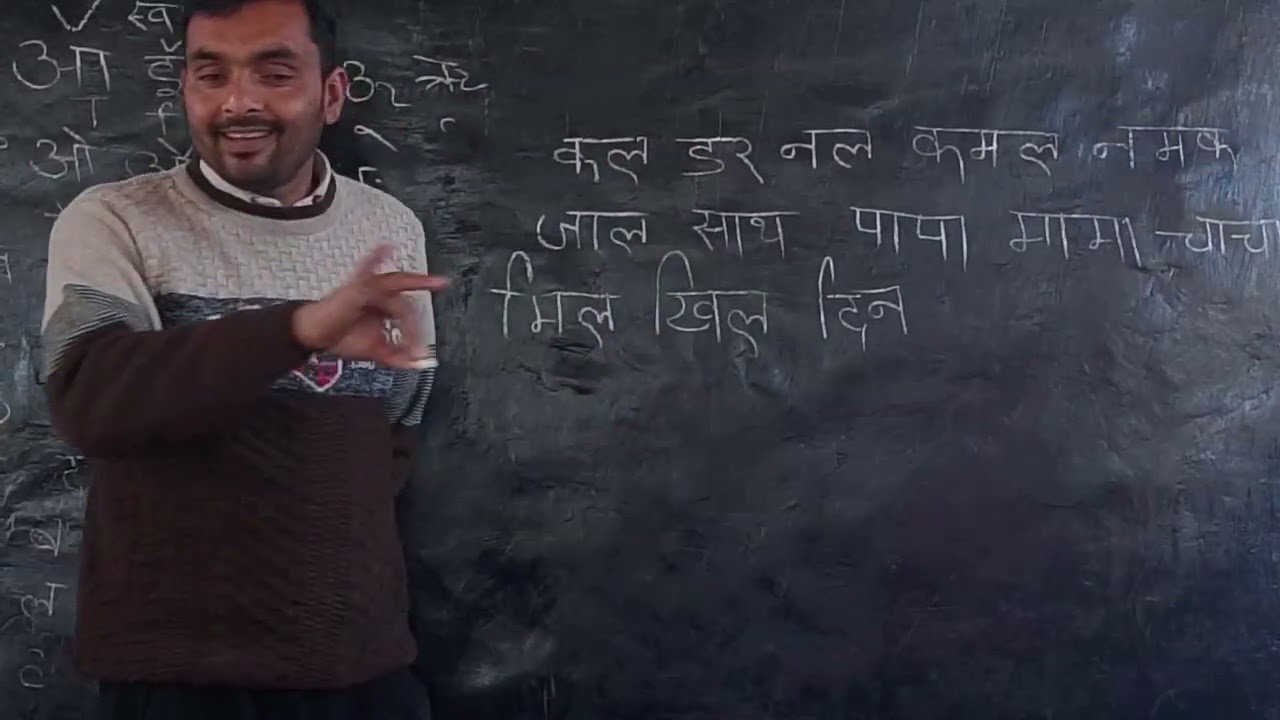 स्व
आ ई
ओ
कल डर नल कमल नमक
जाल साथ पापा मामा चाचा
मिल खिल दिन
ब
ल